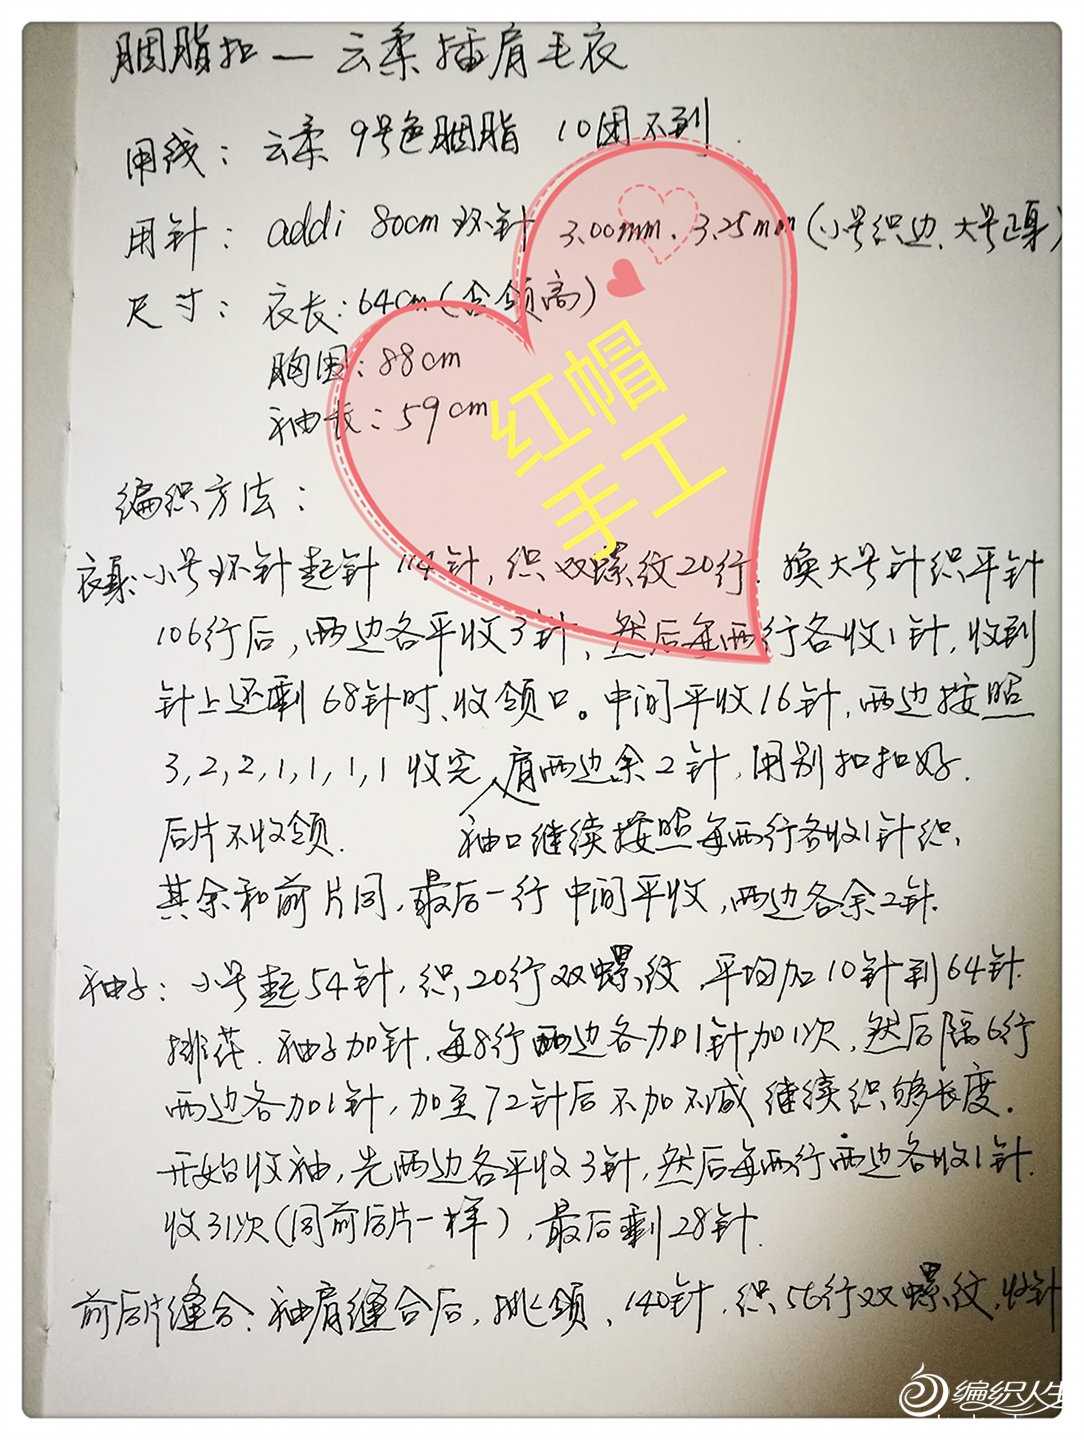 胭脂扣—云柔插肩毛衣
用线：云柔 9号色胭脂 10团不到.
用针：addi 80cm环针 3.00mm、3.25mm(小号织边、大号正身)
尺寸：衣长：64cm(含领高)
胸围：88cm
袖长：59cm
红帽
手工
编织方法：
衣身：小号环针起针114针，织双螺纹20行.换大号针织平针
106行后，两边各平收3针，然后每两行各收1针，收到
针上还剩68针时、收领口。中间平收16针，两边按照
3,2,2,1,1,1,1收完，肩两边余2针，用别扣扣好.
袖口继续按照每两行各收1针织，
后片不收领.
其余和前片同，最后一行中间平收，两边各余2针.
袖子：小号起54针，织20行双螺纹，平均加10针到64针
排花.袖子加针，每8行两边各加1针加1次，然后隔6行
两边各加1针，加至72针后不加不减继续织够长度.
开始收袖，先两边各平收3针，然后每两行两边各收1针.
收31次(同前后片一样)，最后剩28针.
前后片缝合、袖肩缝合后，挑领，140针，织56行双螺纹，收针
编织人生